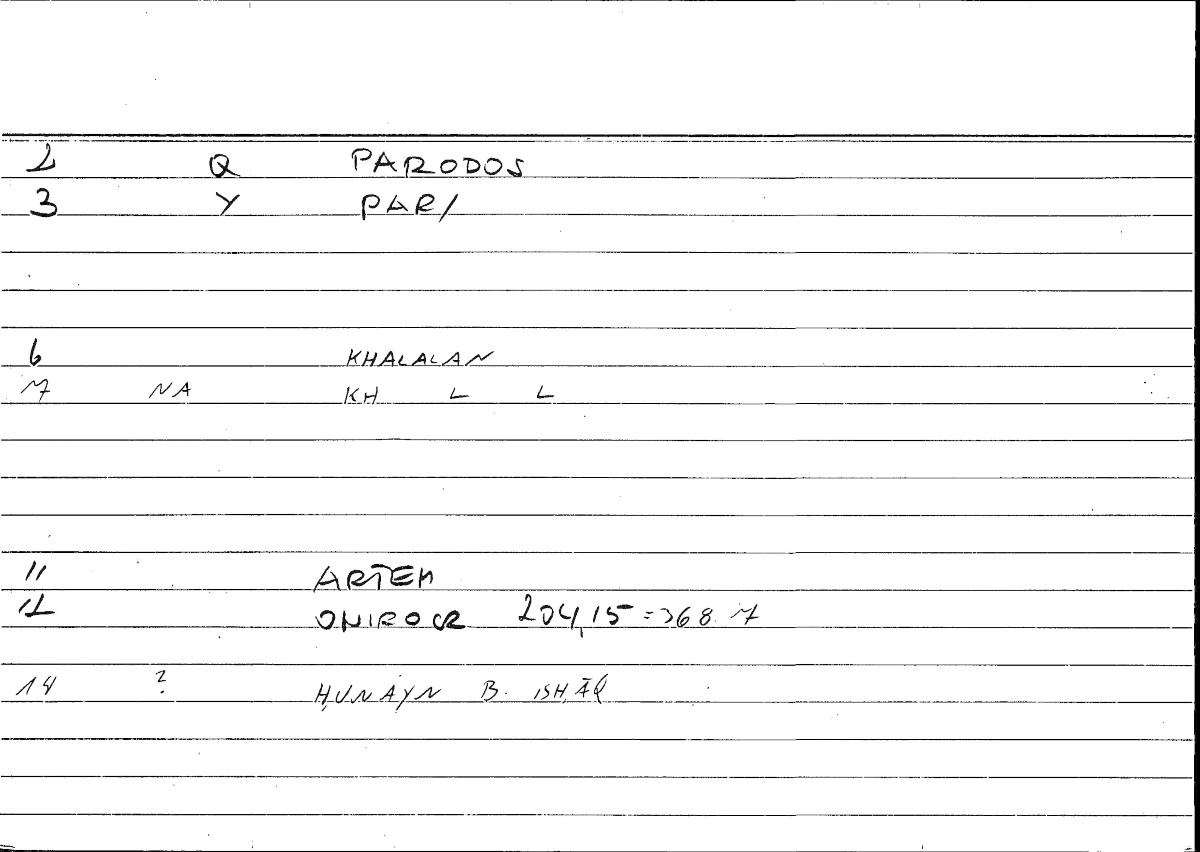 2 Q PARODOS
3 Y PAR/
6 KHALALAN
7 NA KH L L
11 ARTEM
12 ONIROCR 204,15 = 368.7
14 ? ḤUNAYN B. ISḤĀQ